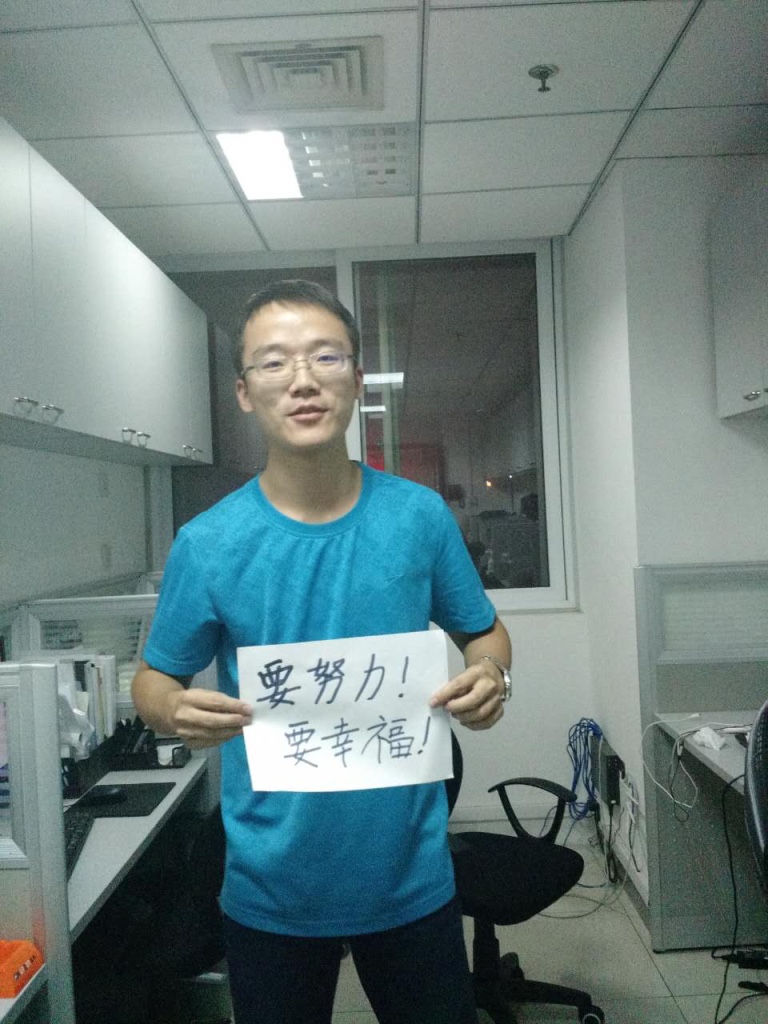 要努力!
要幸福!